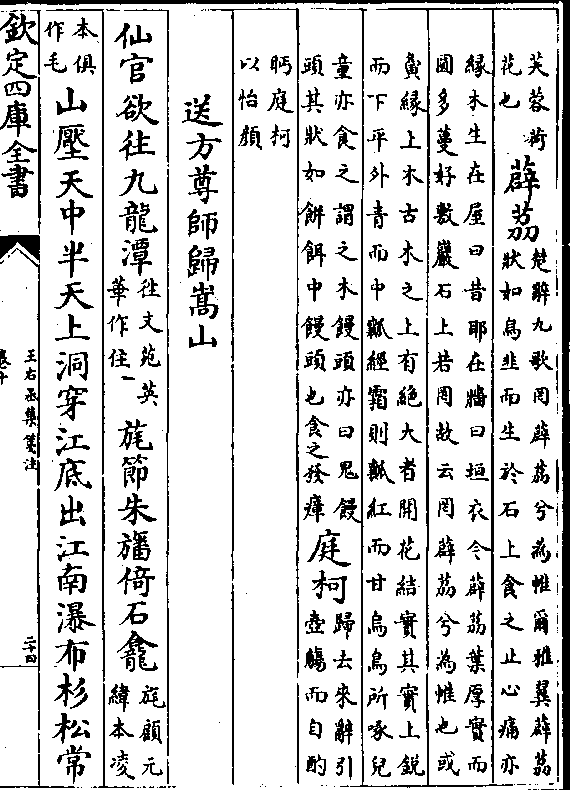 芙蓉荷
花也
薜荔
楚辭九歌罔薜荔兮為帷爾雅翼薜荔
狀如烏韭而生於石上食之止心痛亦
緣木生在屋曰昔耶在牆曰垣衣今薜荔葉厚實而
圓多蔓好敷巖石上若罔故云罔薜荔兮為帷也或
夤緣上木古木之上有絶大者開花結實其實上銳
而下平外青而中瓤經霜則瓤紅而甘烏鳥所啄兒
童亦食之謂之木饅頭亦曰鬼饅
頭其狀如餅餌中饅頭也食之發瘴
庭柯
歸去來辭引
壺觴而自酌
眄庭柯
以怡顔
送方尊師歸嵩山
仙官欲往九龍潭
往文苑英
華作住一
旄節朱旛倚石龕
旄顧元
緯本凌
本俱
作毛
山壓天中半天上洞穿江底出江南瀑布杉松常
欽定四庫全書
王右丞集箋注
卷十
二十四